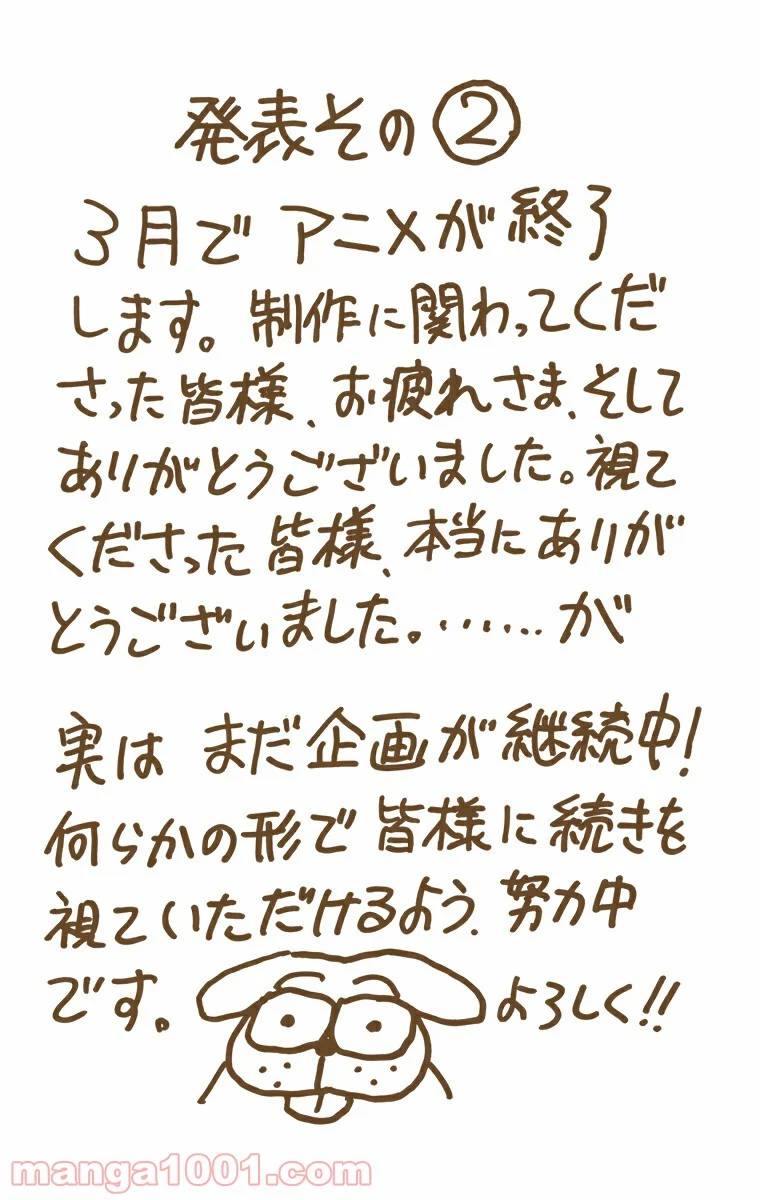 発表その②
3月でアニメが終了
します。制作に関わってくだ
さった皆様、お疲れさま、そして
ありがとうございました。視て
くださった皆様、本当にありが
とうございました。‥‥‥が
実はまだ企画が継続中!
何らかの形で皆様に続きを
視ていただけるよう、努力中
です。よろしく!!
manga1001.com